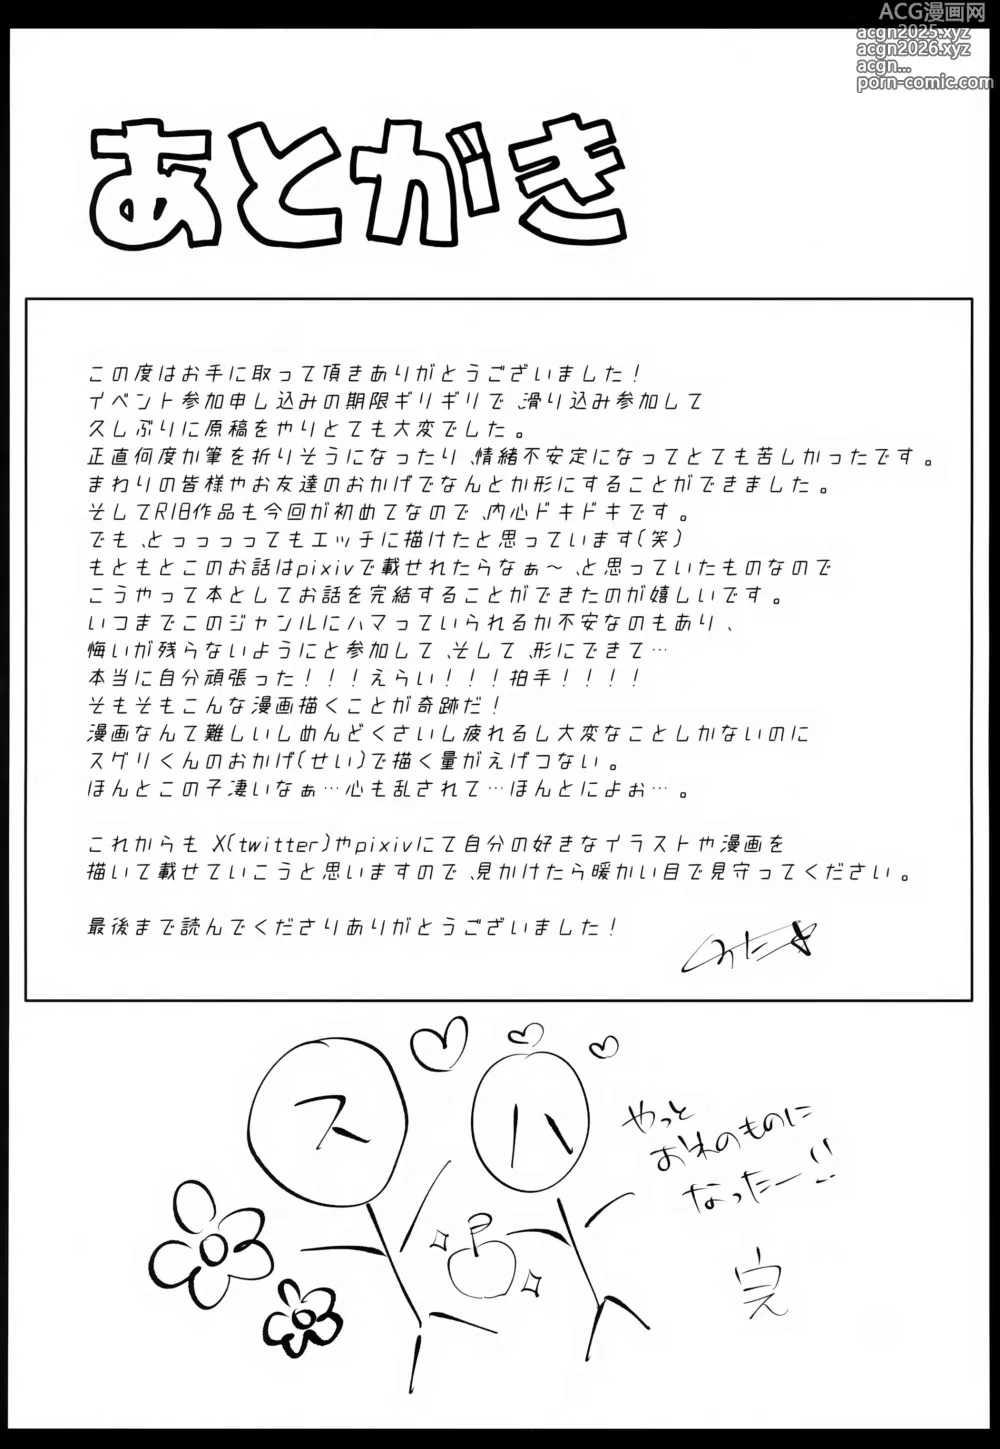 ACG漫画网
acgn2025.xyz
acgn2026.xyz
acgn...
porn-comic.com
あとがき
この度はお手に取って頂きありがとうございました！
イベント参加申し込みの期限ギリギリで、滑り込み参加して
久しぶりに原稿をやりとても大変でした。
正直何度か筆を折りそうになったり、情緒不安定になってとても苦しかったです。
まわりの皆様やお友達のおかげでなんとか形にすることができました。
そしてR18作品も今回が初めてなので、内心ドキドキです。
でも、とっっっってもエッチに描けたと思っています(笑)
もともとこのお話はpixivで載せれたらなぁ～、と思っていたものなので
こうやって本としてお話を完結することができたのが嬉しいです。
いつまでこのジャンルにハマっていられるか不安なのもあり、
悔いが残らないようにと参加して、そして、形にできて…
本当に自分頑張った！！！えらい！！！拍手！！！！
そもそもこんな漫画描くことが奇跡だ！
漫画なんて難しいしめんどくさいし疲れるし大変なことしかないのに
スグリくんのおかげ(せい)で描く量がえげつない。
ほんとこの子凄いなぁ…心も乱されて…ほんとによぉ…。
これからも X(twitter)やpixivにて自分の好きなイラストや漫画を
描いて載せていこうと思いますので、見かけたら暖かい目で見守ってください。
最後まで読んでくださりありがとうございました！
ス
ハ
やっと
おれのものに
なったー!!
完